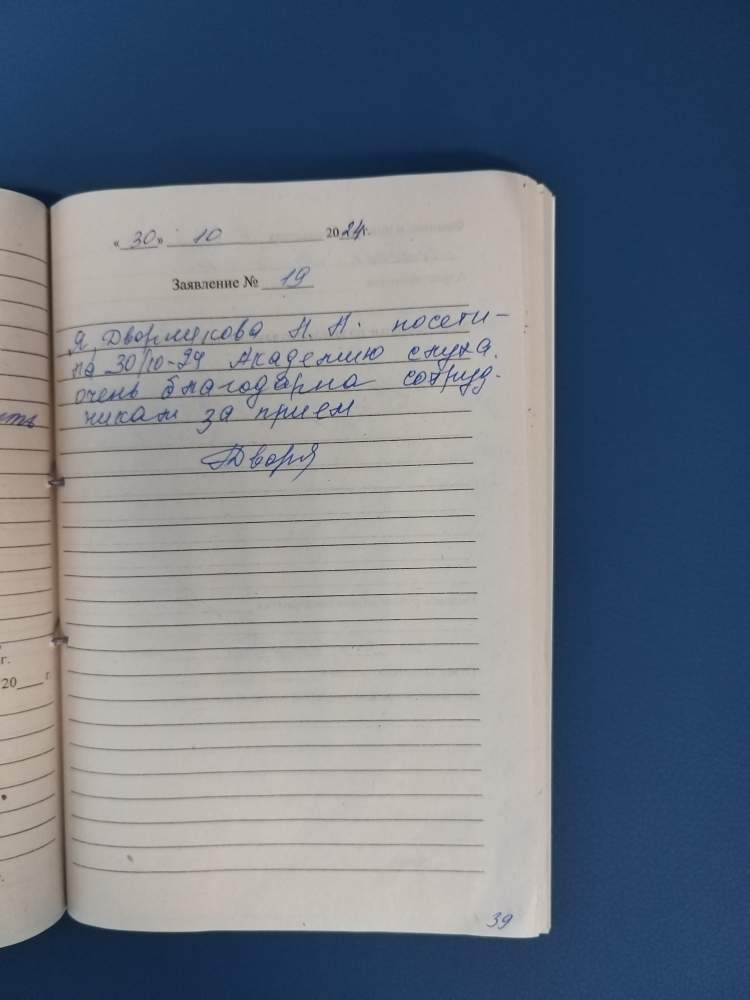 « 30 » 10 2024г.
Заявление № 19
Я, Дворянкова Н. Н. посети-
ла 30/10-24 Академию слуха.
очень благодарна сотруд-
никам за прием
Дворя
г.
20 г
39